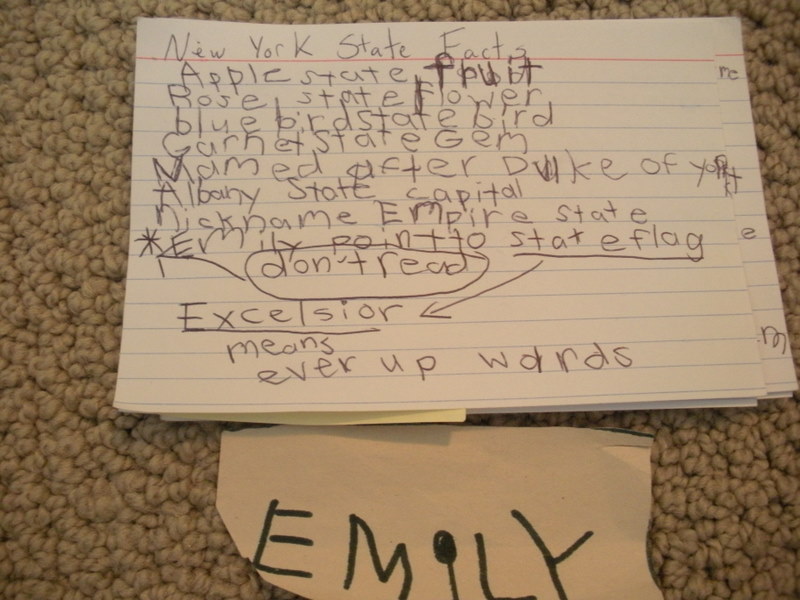 New York State Facts
Apple state fruit
Rose state flower
blue bird state bird
Garnet State Gem
Named after Duke of york
Albany State capital
nickname Empire state
*Emily point to state flag
don't read
Excelsior
means
ever up wards
EMiLY